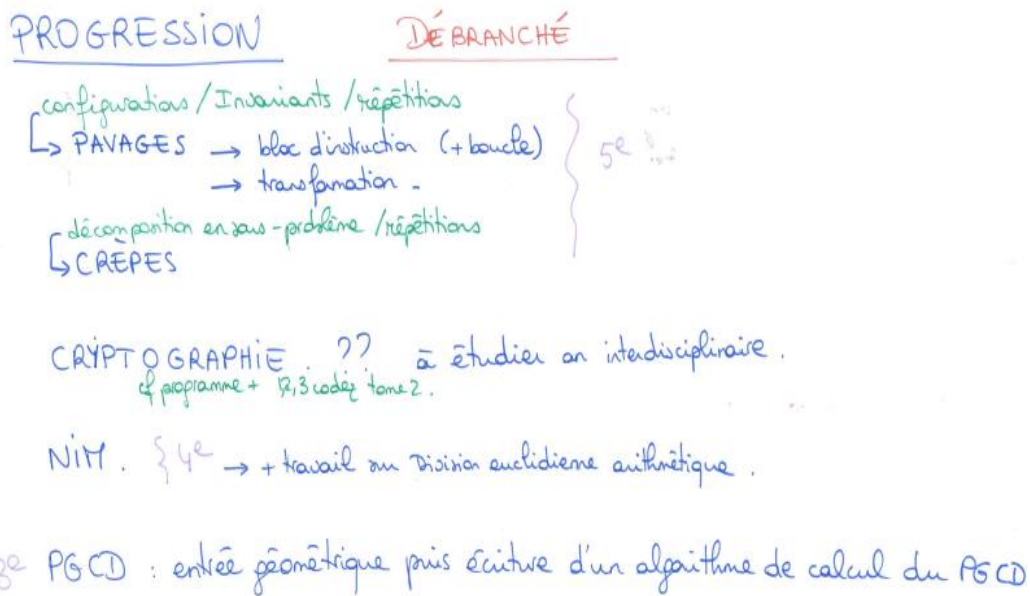 PROGRESSION DÉBRANCHÉ
configurations / Invariants / répétitions
↳ PAVAGES → bloc d'instruction (+ boucle)
→ transformation.
5e
décomposition en sous-problème / répétitions
↳ CRÈPES
CRYPTOGRAPHIE ?? à étudier en interdisciplinaire.
cf programme + 1,2,3 codez tome 2.
NIM. { 4e → + travail sur Division euclidienne arithmétique.
3e PGCD : entrée géométrique puis écriture d'un algorithme de calcul du PGCD